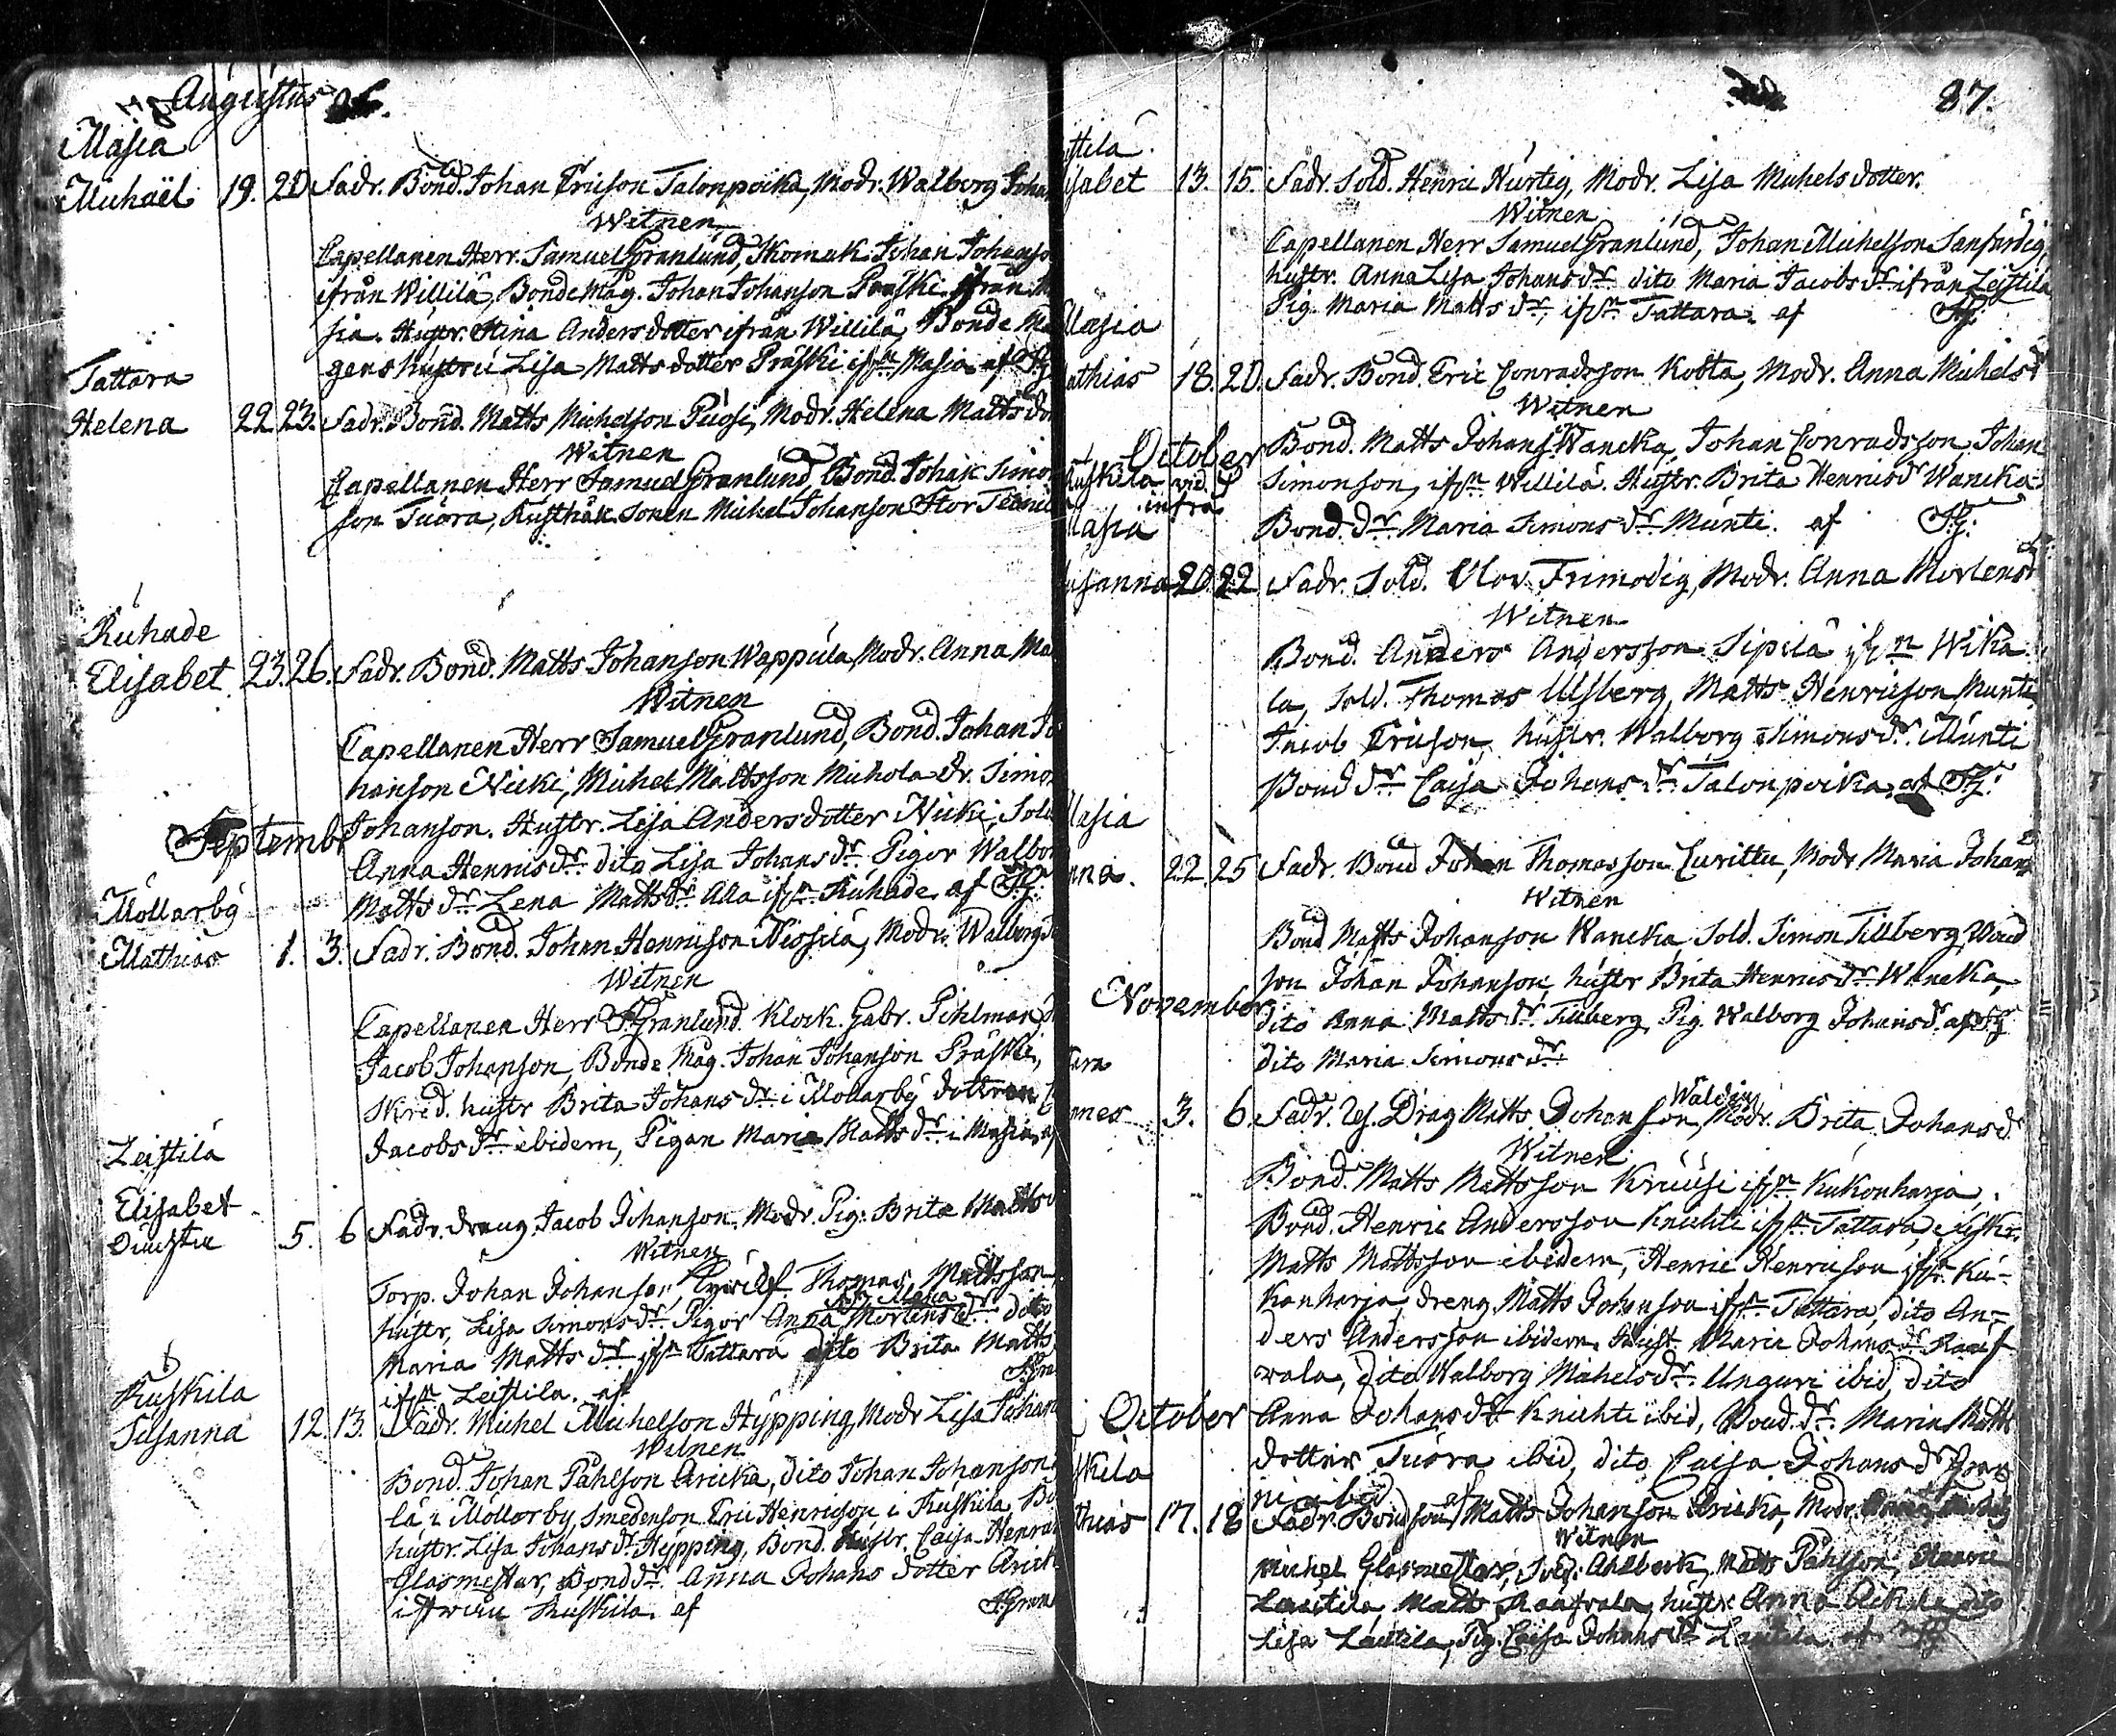 Augustus 86.
Masia
Michaël 19. 20 Fadr. Bond. Johan Ericson Talonpoika, Modr. Walborg Johan
Witnen
Capellanen Herr Samuel Granlund, Skomak. Johan Johanso
ifrån Willilä, Bonde Mag. Johan Johanson Präski ifrån M
sia. Hustr. Stina Andersdotter ifrån Willilä, Bonde Ma
gens hustru Lisa Mattsdotter Präski ifrn Masia. af SG
Tattara
Helena 22 23. Fadr. Bond. Matts Michelson Piusi, Modr. Helena Matts do
Witnen
Capellanen Herr Samuel Granlund, Bond. Johan Simon
son Tuora, Rusthåll. Sonen Michel Johanson Stor
Ruhade
Elisabet 23. 26. Fadr. Bond. Matts Johanson Wappula, Modr. Anna Ma
Witnen
Capellanen Herr Samuel Granlund, Bond. Johan Jo
hanson Nicki, Michel Mattsson Michola dr. Simon
Septembr Johanson. Hustr. Lisa Andersdotter Nicki, Sold
Anna Henricsdr. dito Lisa Johansdr. Pigor Walbor
Matts dr. Lena Mattsdr. Alla ifrn Ruhade. af SG.
Möllarby
Mathias 1. 3. Fadr. Bond. Johan Henricson Nissilä, Modr. Walborg
Witnen
Capellanen Herr SGranlund. Klock. Gabr. Pihlman,
Jacob Johanson, Bonde Mag. Johan Johanson Präski,
Skred. hustr Brita Johans dr. i Möllarby dottren
Jacobs dr. ibidem, Pigan Maria Matts dr. i Masia, af
Leistilä
Elisabet
5. 6 Fadr. dreng Jacob Johanson, Modr. Pig. Brita Matts
Witnen
Torp. Johan Johanson, Thomas Mattsson
hustr. Lisa Simonsdr. Pigor Anna Mortensdr. dito
Maria Matts dr. ifrn Tattara dito Brita Matts
ifrn Leistila. af SGra
Kuskila
Susanna 12. 13. Fadr. Michel Michelson Hypping, Modr Lisa Johan
Witnen
Bond. Johan Påhlson Aricka, dito Johan Johanson
lä i Möllorby, Smedenson Eric Henricson i Kuskila, Bo
hustr. Lisa Johans dr Hypping, Bond. Hustr. Caisa Henric
Glasmestar, Bond dr. Anna Johans dotter Arick
ifrån Kuskila. af SGran
87.
istila.
isabet 13. 15. Fadr. Sold. Henric Hurtig, Modr. Lisa Michelsdotter.
Witnen
Capellanen Herr Samuel Granlund, Johan Michelson Sanfärdig,
hustr. Anna Lisa Johansdr. dito Maria Jacobsdr. ifrån Leistila
Pig. Maria Matts dr. ifrn Tattara. af SG.
Masia
athias 18. 20. Fadr. Bond. Eric Conradsson Kobta, Modr. Anna Michels dr
Witnen
October Bond. Matts Johans. Wancka, Johan Conradsson, Johan
Kuskila vid. Simonson, ifrn Willilä. Hustr. Brita Henricsdr Wancka
infra
Masia Bond. dr. Maria Simonsdr. Munti. af SG.
usanna 20. 22 Fadr. Sold. Olov Frimodig, Modr. Anna Mortensd
Witnen
Bond. Anders Andersson Sipilä ifrn Wika
la, Sold. Thomas Ulsberg, Matts Henricson Munti
Jacob Ericson, hustr. Walborg Simonsdr. Munti
Bond dr. Caisa Johans dr. Talonpoika. af SG.
Masia
nna. 22. 25 Fadr. Bond Johan Thomasson Curittu, Modr Maria Johans
Witnen
Bond Matts Johanson Wancka, Sold. Simon Tillberg, Bond
son Johan Johanson, hustr Brita Henricsdr. Wancka,
November dito Anna Matts dr. Tillberg, Pig. Walborg Johansd. af SG
dito Maria Simonsdr.
tara
nnes 3. 6. Fadr. Drag Matts Johanson, Modr. Brita Johansd
Witnen
Bond. Matts Mattsson Kruusi ifrn Kukonharja,
Bond. Henric Andersson Knichti ifrn Tattara,
Matts Mattsson ibidem, Henric Henricson ifrn Ku-
konharja, dreng Matts Johanson ifrn Tattara, dito An-
ders Andersson ibidem. Hust. Maria Johansdr.
vala, dito Walborg Michels dr. Unguri ibid, dito
October Anna Johans dr. Knichti ibid, Bond. dr. Maria Matts
dotter Tuora ibid, dito Caisa Johans dr
skila ibid af
thias 17. 18 Fadr. Bond son Matts Johanson Aricka, Modr.
Witnen
Michel Glasmestar, Sold. Ahlberk, Matts Påhlson, Henric
Lautila, Matts hustr. Anna dito
Lisa Lautila, Pig. Caisa Johans dr. Lautila. af SG